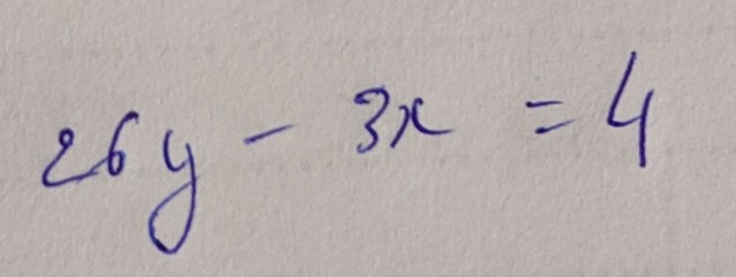 26y - 3x = 4